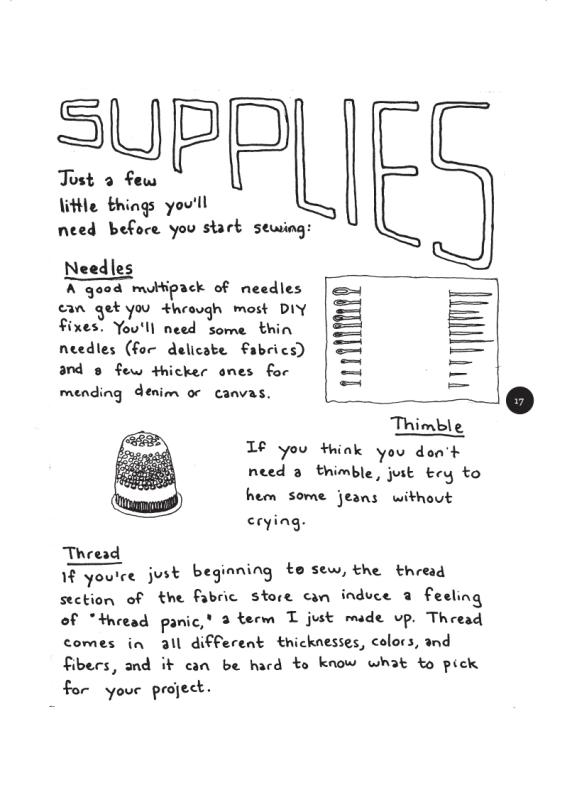 SUPPLIES
Just a few
little things you'll
need before you start sewing:
Needles
A good multipack of needles
can get you through most DIY
fixes. You'll need some thin
needles (for delicate fabrics)
and a few thicker ones for
mending denim or canvas.
17
Thimble
If you think you don't
need a thimble, just try to
hem some jeans without
crying.
Thread
If you're just beginning to sew, the thread
section of the fabric store can induce a feeling
of "thread panic," a term I just made up. Thread
comes in all different thicknesses, colors, and
fibers, and it can be hard to know what to pick
for your project.